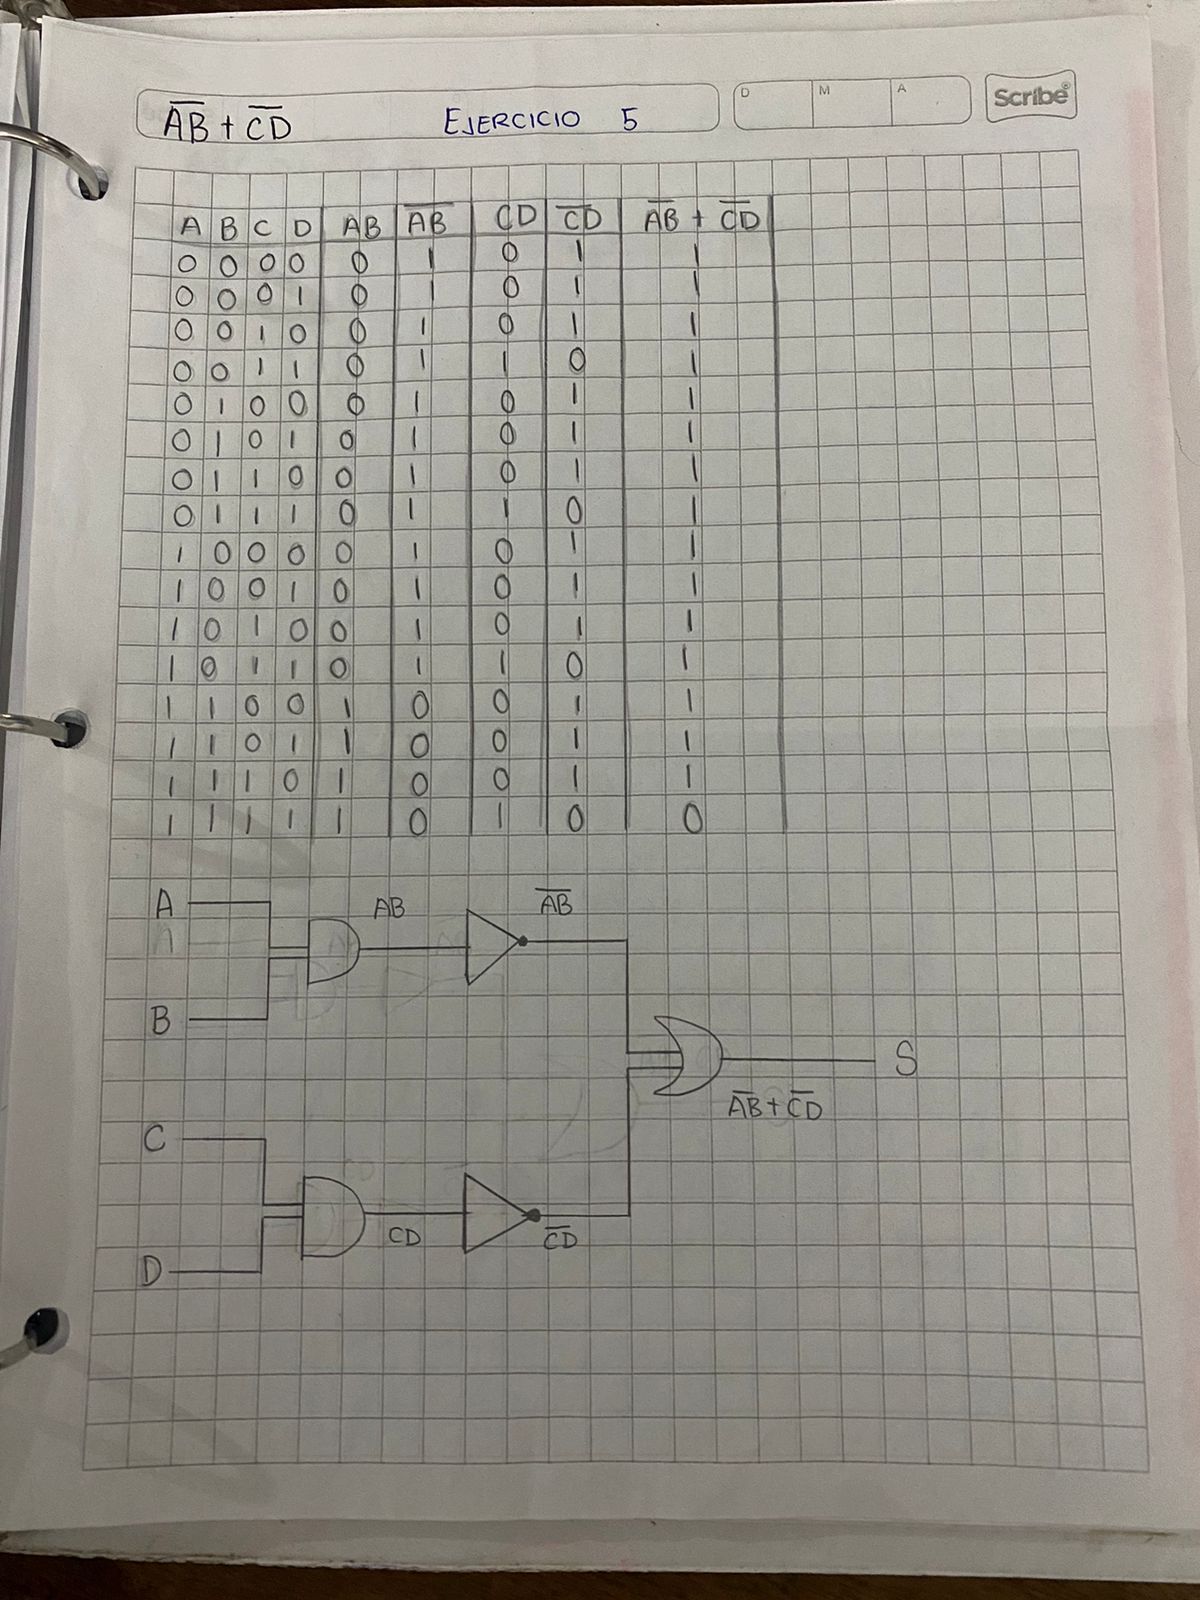 A̅B̅ + C̅D̅ EJERCICIO 5 D M A Scribe®
A B C D AB A̅B̅ CD C̅D̅ A̅B̅ + C̅D̅
0 0 0 0 0 1 0 1 1
0 0 0 1 0 1 0 1 1
0 0 1 0 0 1 0 1 1
0 0 1 1 0 1 1 0 1
0 1 0 0 0 1 0 1 1
0 1 0 1 0 1 0 1 1
0 1 1 0 0 1 0 1 1
0 1 1 1 0 1 1 0 1
1 0 0 0 0 1 0 1 1
1 0 0 1 0 1 0 1 1
1 0 1 0 0 1 0 1 1
1 0 1 1 0 1 1 0 1
1 1 0 0 1 0 0 1 1
1 1 0 1 1 0 0 1 1
1 1 1 0 1 0 0 1 1
1 1 1 1 1 0 1 0 0
A AB A̅B̅
B
S
A̅B̅ + C̅D̅
C
CD C̅D̅
D